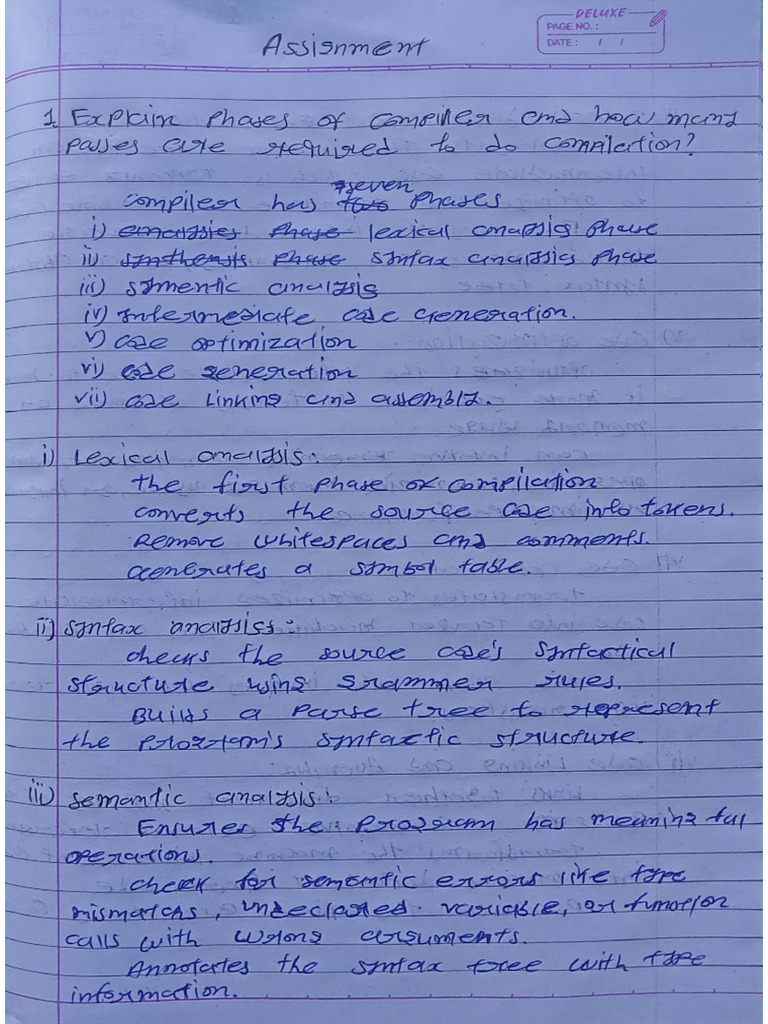 DELUXE
PAGE NO. :
DATE : / /
Assignment
1. Explain phases of compiler and how many
passes are required to do compilation?
seven
compiler has two phases
i) analysies phase lexical analysis phase
ii) synthensis phase syntax analysics phase
iii) symentic analysis
iv) intermediate code Generation.
v) code optimization
vi) code generation
vii) code linking and assembly.
i) Lexical analysis:
the first phase of compilation
converts the source code into tokens.
Remove whitespaces and comments.
Generates a symbol table.
ii) syntax analysis:
checks the source code's syntactical
structure using grammer rules.
Builds a parse tree to represent
the program's syntactic structure.
iii) semantic analysis:
Ensures the program has meaningful
operations.
check for semantic errors like type
mismatchs, undeclared variable, or function
calls with wrong arguments.
Annotates the syntax tree with type
information.